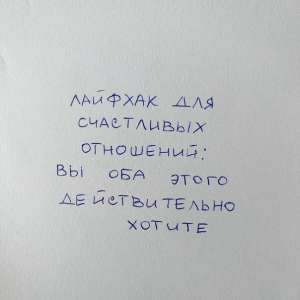 ЛАЙФХАК ДЛЯ
СЧАСТЛИВЫХ
ОТНОШЕНИЙ:
ВЫ ОБА ЭТОГО
ДЕЙСТВИТЕЛЬНО
ХОТИТЕ